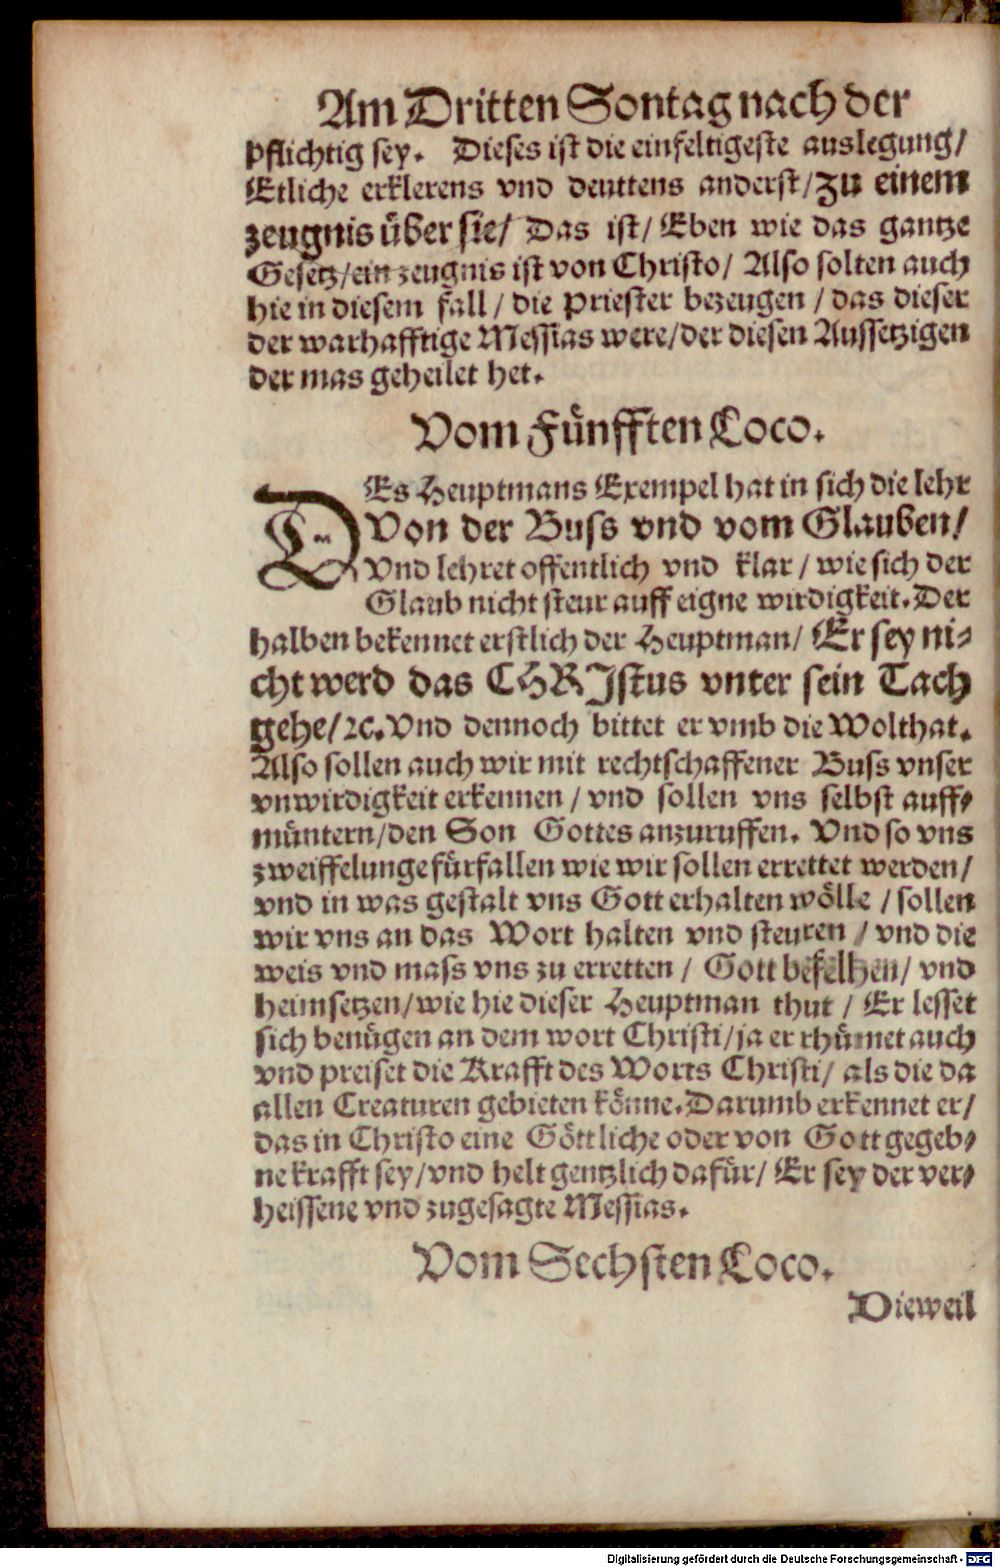 Am Dritten Sontag nach der
pflichtig sey. Dieses ist die einfeltigeste auslegung/
Etliche erklerens vnd deuttens anderst/ zu einem
zeugnis über sie/ Das ist/ Eben wie das gantze
Gesetz/ein zeugnis ist von Christo/ Also solten auch
hie in diesem fall/ die Priester bezeugen/ das dieser
der warhafftige Messias were/der diesen Aussetzigen
der mas geheilet het.
Vom Fünfften Loco.
DEs Heuptmans Exempel hat in sich die lehr
Von der Buss vnd vom Glauben/
Vnd lehret offentlich vnd klar/ wie sich der
Glaub nicht steur auff eigne wirdigkeit. Der
halben bekennet erstlich der Heuptman/ Er sey ni-
cht werd das CHRJstus vnter sein Tach
gehe/ꝛc. Vnd dennoch bittet er vmb die Wolthat.
Also sollen auch wir mit rechtschaffener Buss vnser
vnwirdigkeit erkennen/ vnd sollen vns selbst auff-
müntern/den Son Gottes anzuruffen. Vnd so vns
zweiffelunge fürfallen wie wir sollen errettet werden/
vnd in was gestalt vns Gott erhalten wölle/ sollen
wir vns an das Wort halten vnd steuren/ vnd die
weis vnd mass vns zu erretten/ Gott befelhen/ vnd
heimsetzen/wie hie dieser Heuptman thut/ Er lesset
sich benügen an dem wort Christi/ja er rhümet auch
vnd preiset die Krafft des Worts Christi/ als die da
allen Creaturen gebieten könne. Darumb erkennet er/
das in Christo eine Göttliche oder von Gott gegeb-
ne krafft sey/vnd helt gentzlich dafür/ Er sey der ver-
heissene vnd zugesagte Messias.
Vom Sechsten Loco.
Dieweil
Digitalisierung gefördert durch die Deutsche Forschungsgemeinschaft - DFG